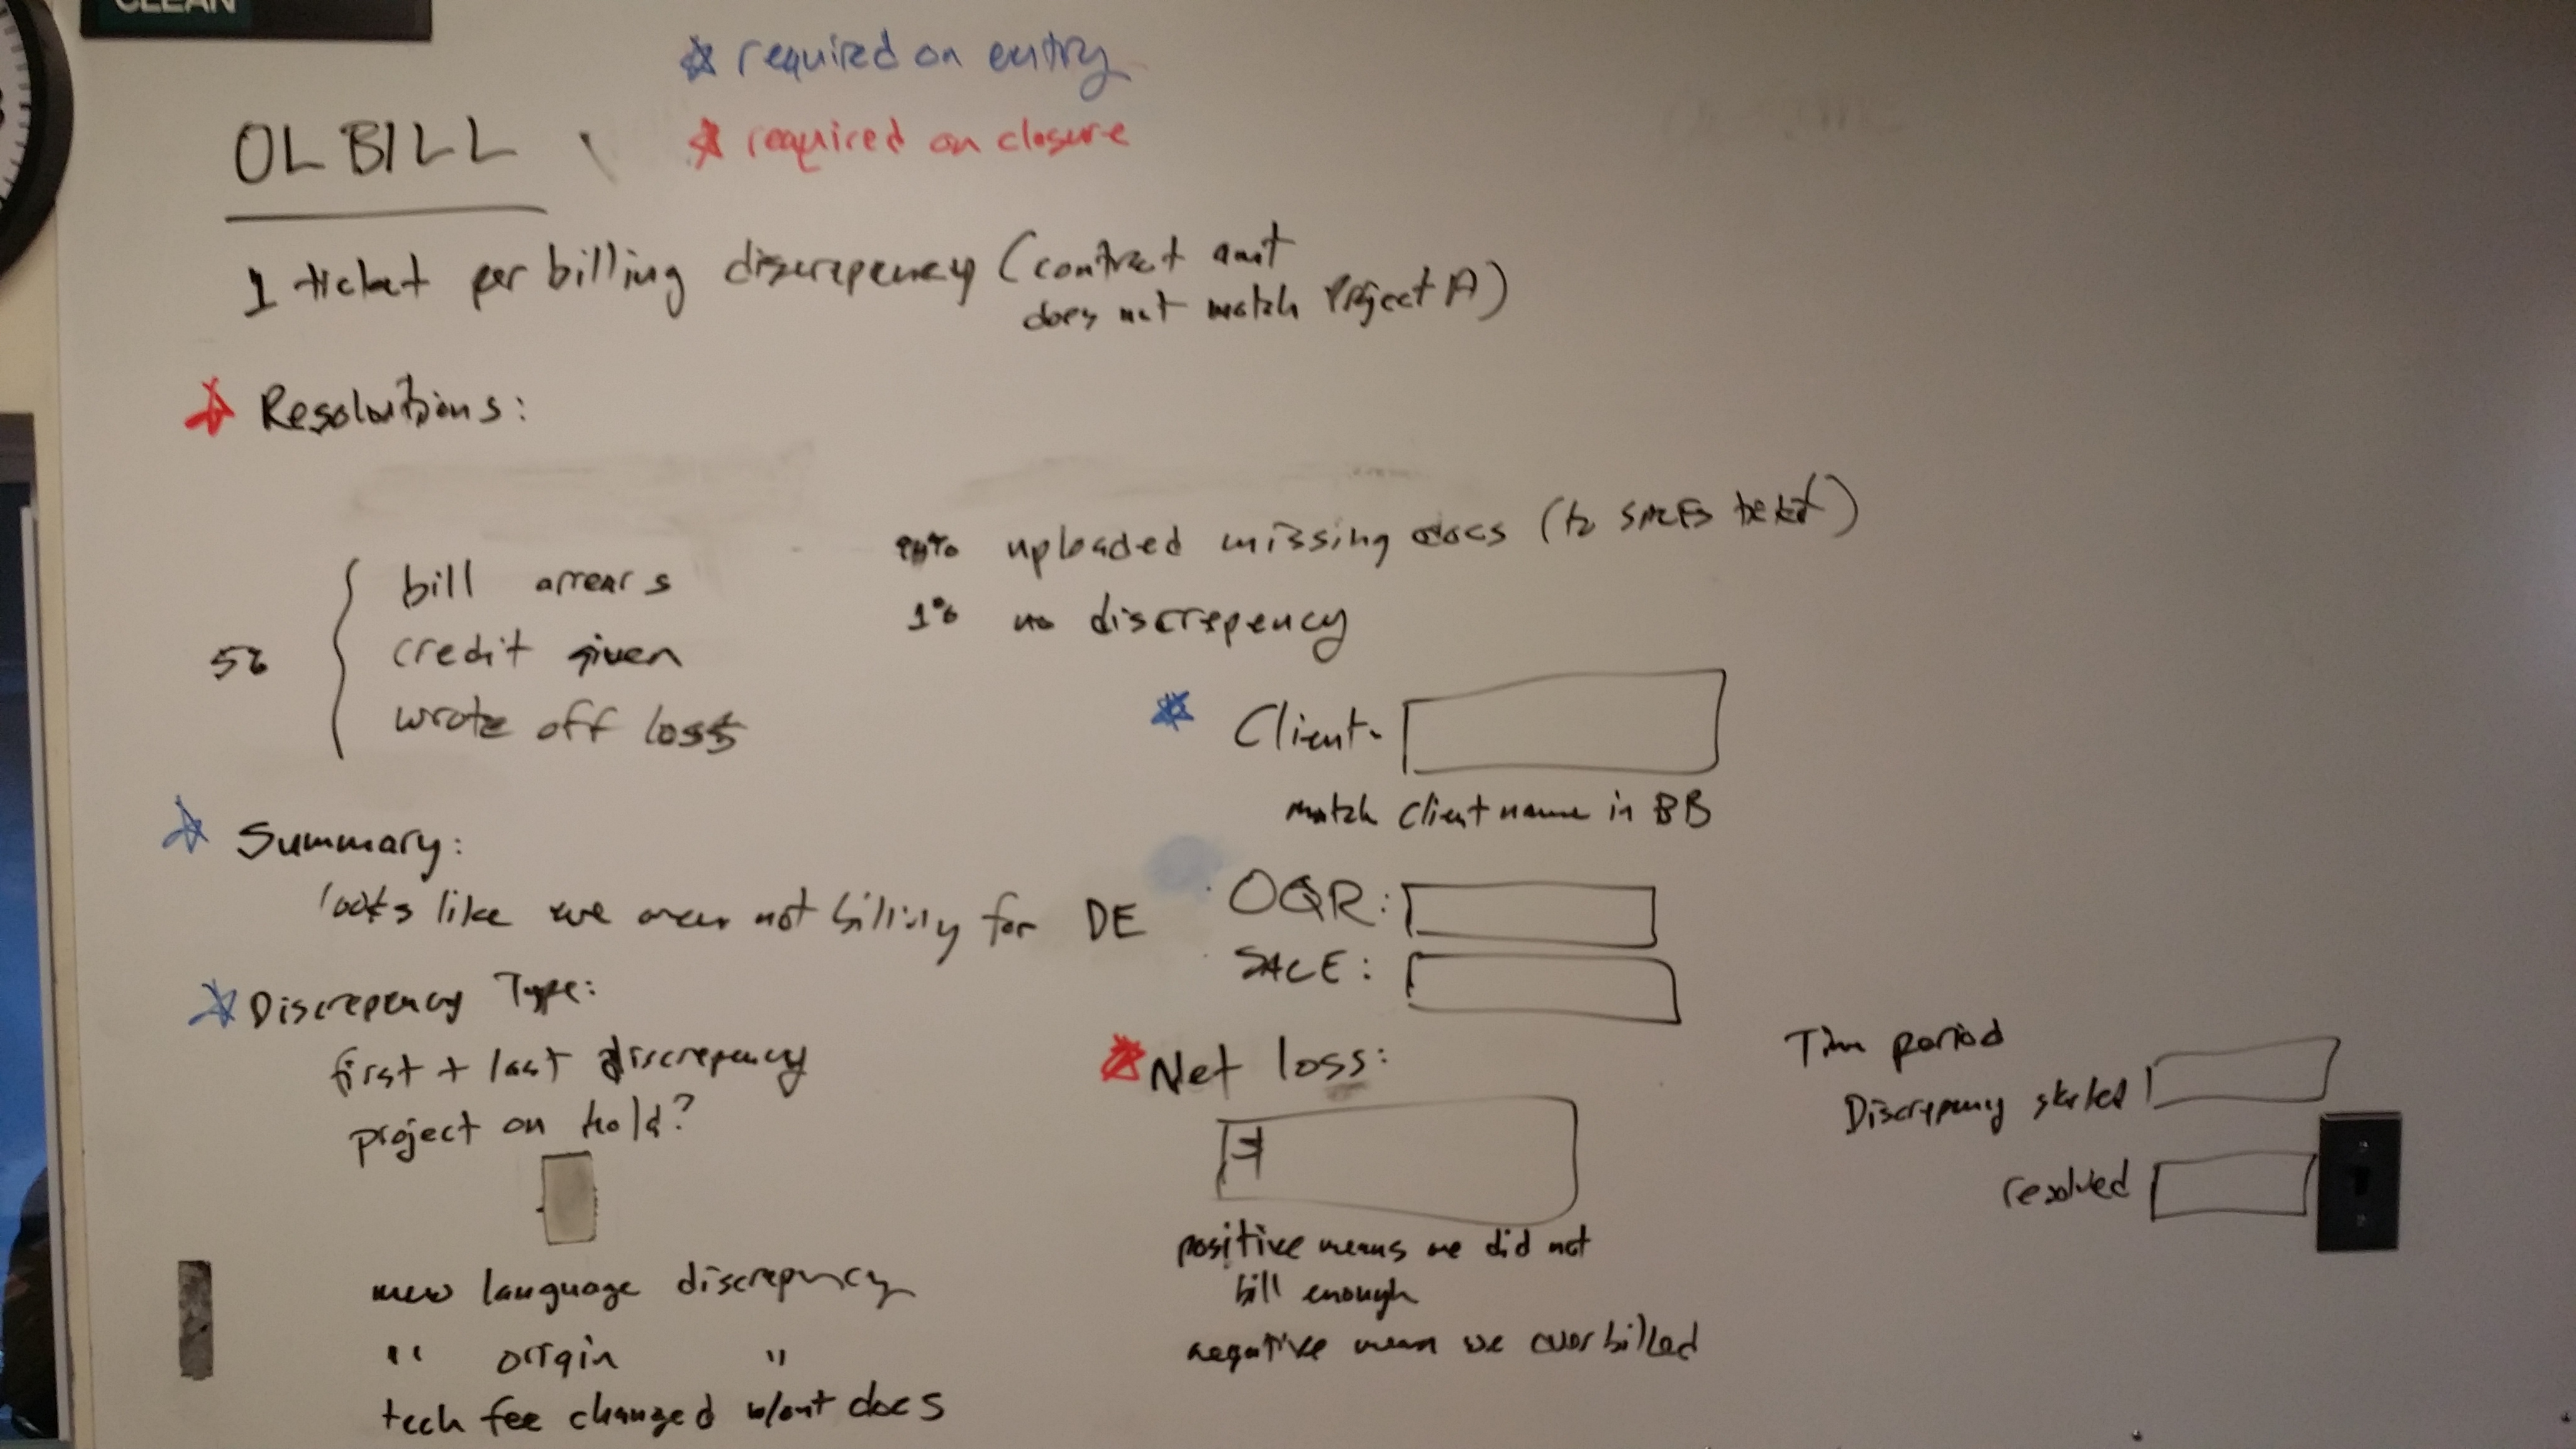 CLEAN
☆ required on entry
☆ required on closure
OLBILL
1 ticket per billing discrepency (contract amt
does not match Project A)
☆ Resolutions:
uploaded missing docs (to
1% no discrepency
bill arrears
credit given
wrote off loss
☆ Client-
match client name in BB
☆ Summary:
looks like we are not billing for DE
OQR:
SALE:
☆ Discrepency Type:
first + last discrepency
project on hold?
new language discrepency
" origin "
tech fee changed w/out docs
☆ Net loss:
positive means we did not
bill enough
negative mean we over billed
Time period
Discrepency started
resolved